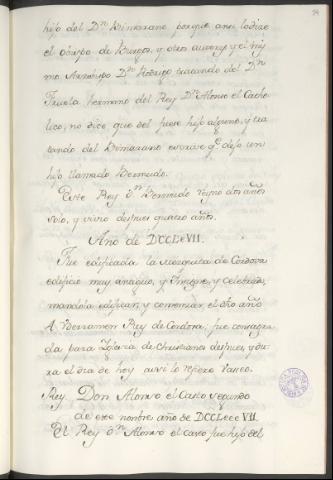 hijo del D.n Vimarano porque ansi lo dize
el obispo de Burgos, y otros autores y el mis
mo Arzobispo D.n Rodrigo tratando del D.n
Fruela hermano del Rey D.n Alonso el Catho
lico, no dice que del fuese hijo alguno, y tra
tando del Vimarano escrive q.e dejo un
hijo llamado Bermudo.
Este Rey D.n Bermudo reyno dos años
solo, y vivio despues quatro años.
Año de DCCLeVII.
Fue edificada la Mezquita de Cordova
edificio muy antiguo, y Insigne, y celebrado,
mandola edificar, y comenzar, el dho año
A Vderramen Rey de Cordova, fue consagra
da para Iglesia de Christianos despues, y du
ra el dia de hoy assi lo refiere Vaseo.
Rey. Don Alonso el Casto segundo
de este nombre año de DCCLeee VII.
El Rey D.n Alonso el casto fue hijo del